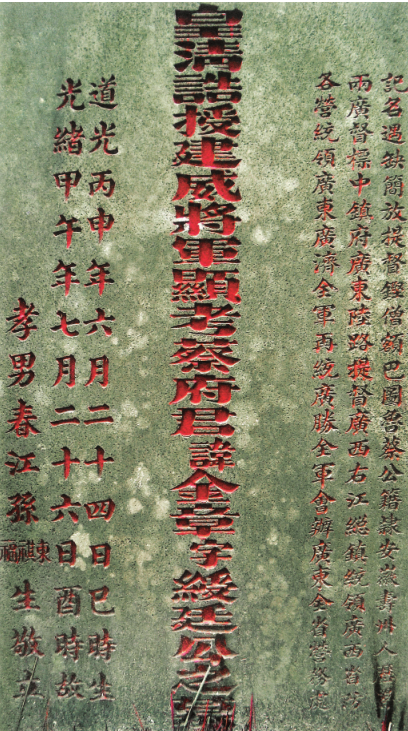 記名遇缺簡放提督鏗僧額巴圖魯蔡公籍隸安徽壽州人
兩廣督標中鎮府廣東陸路提督廣西右江總鎮統領廣西省防
各營統領廣東廣濟全軍再統廣勝全軍會辦廣東全省營務處
皇清誥授建威將軍顯考蔡府君諱金章字綬廷公之墓
道光丙申年六月二十四日巳時生
光緒甲午年七月二十六日酉時故
孝男春江孫東祺福生敬立